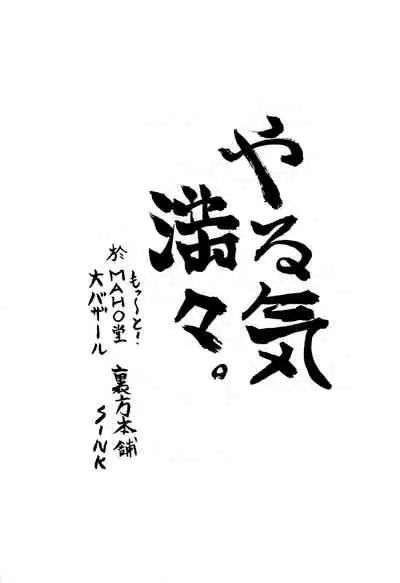 やる気
満々。
もっ〜と!
於 MAHO堂
大バザール
裏方本舗
SINK